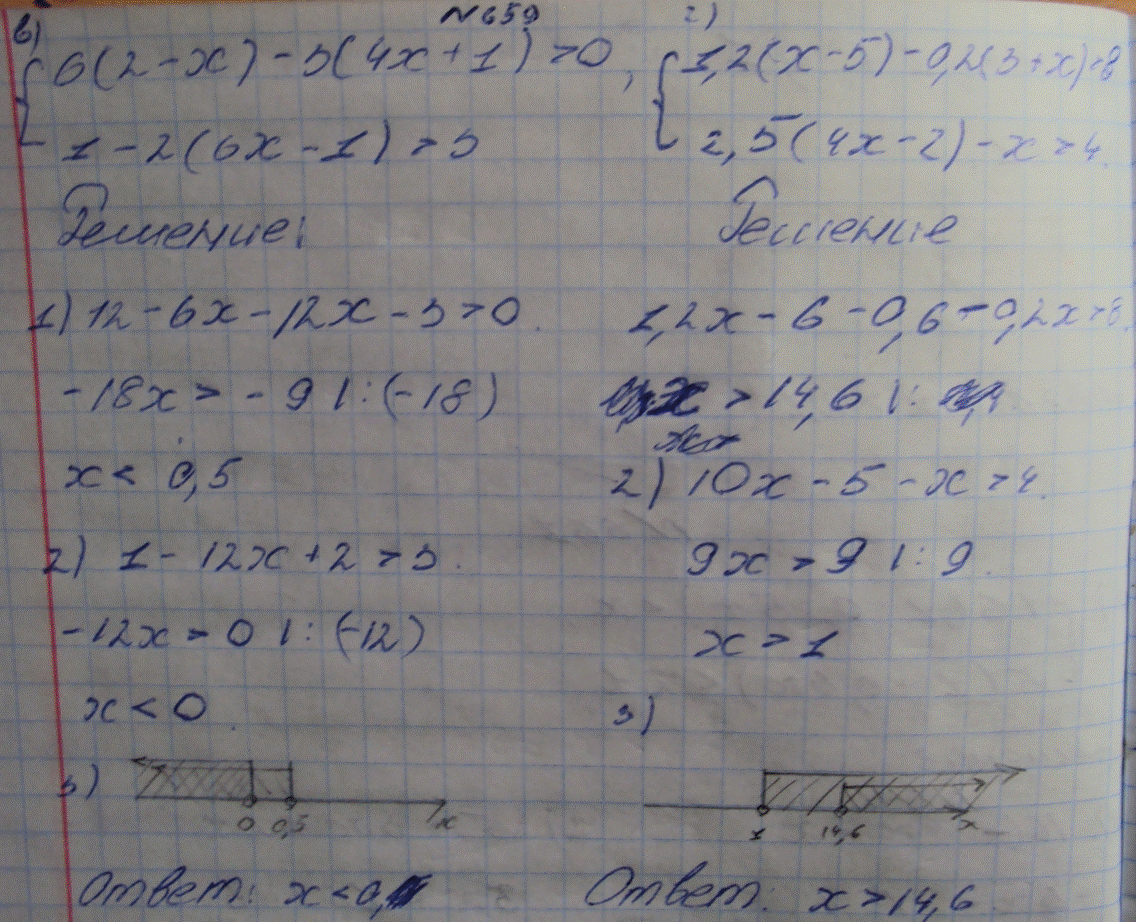 №659
в)
6(2-x)-3(4x+1)>0,
1-2(6x-1)>3
Решение:
1) 12-6x-12x-3>0.
-18x>-9 |:(-18)
x<0,5
2) 1-12x+2>3.
-12x>0 |:(-12)
x<0
3)
0 0,5 x
Ответ: x<0,
г)
1,2(x-5)-0,2(3+x)>8
2,5(4x-2)-x>4.
Решение
1,2x-6-0,6-0,2x>8.
x>14,6 |:
2) 10x-5-x>4.
9x>9 |:9.
x>1
3)
1 14,6 x
Ответ: x>14,6